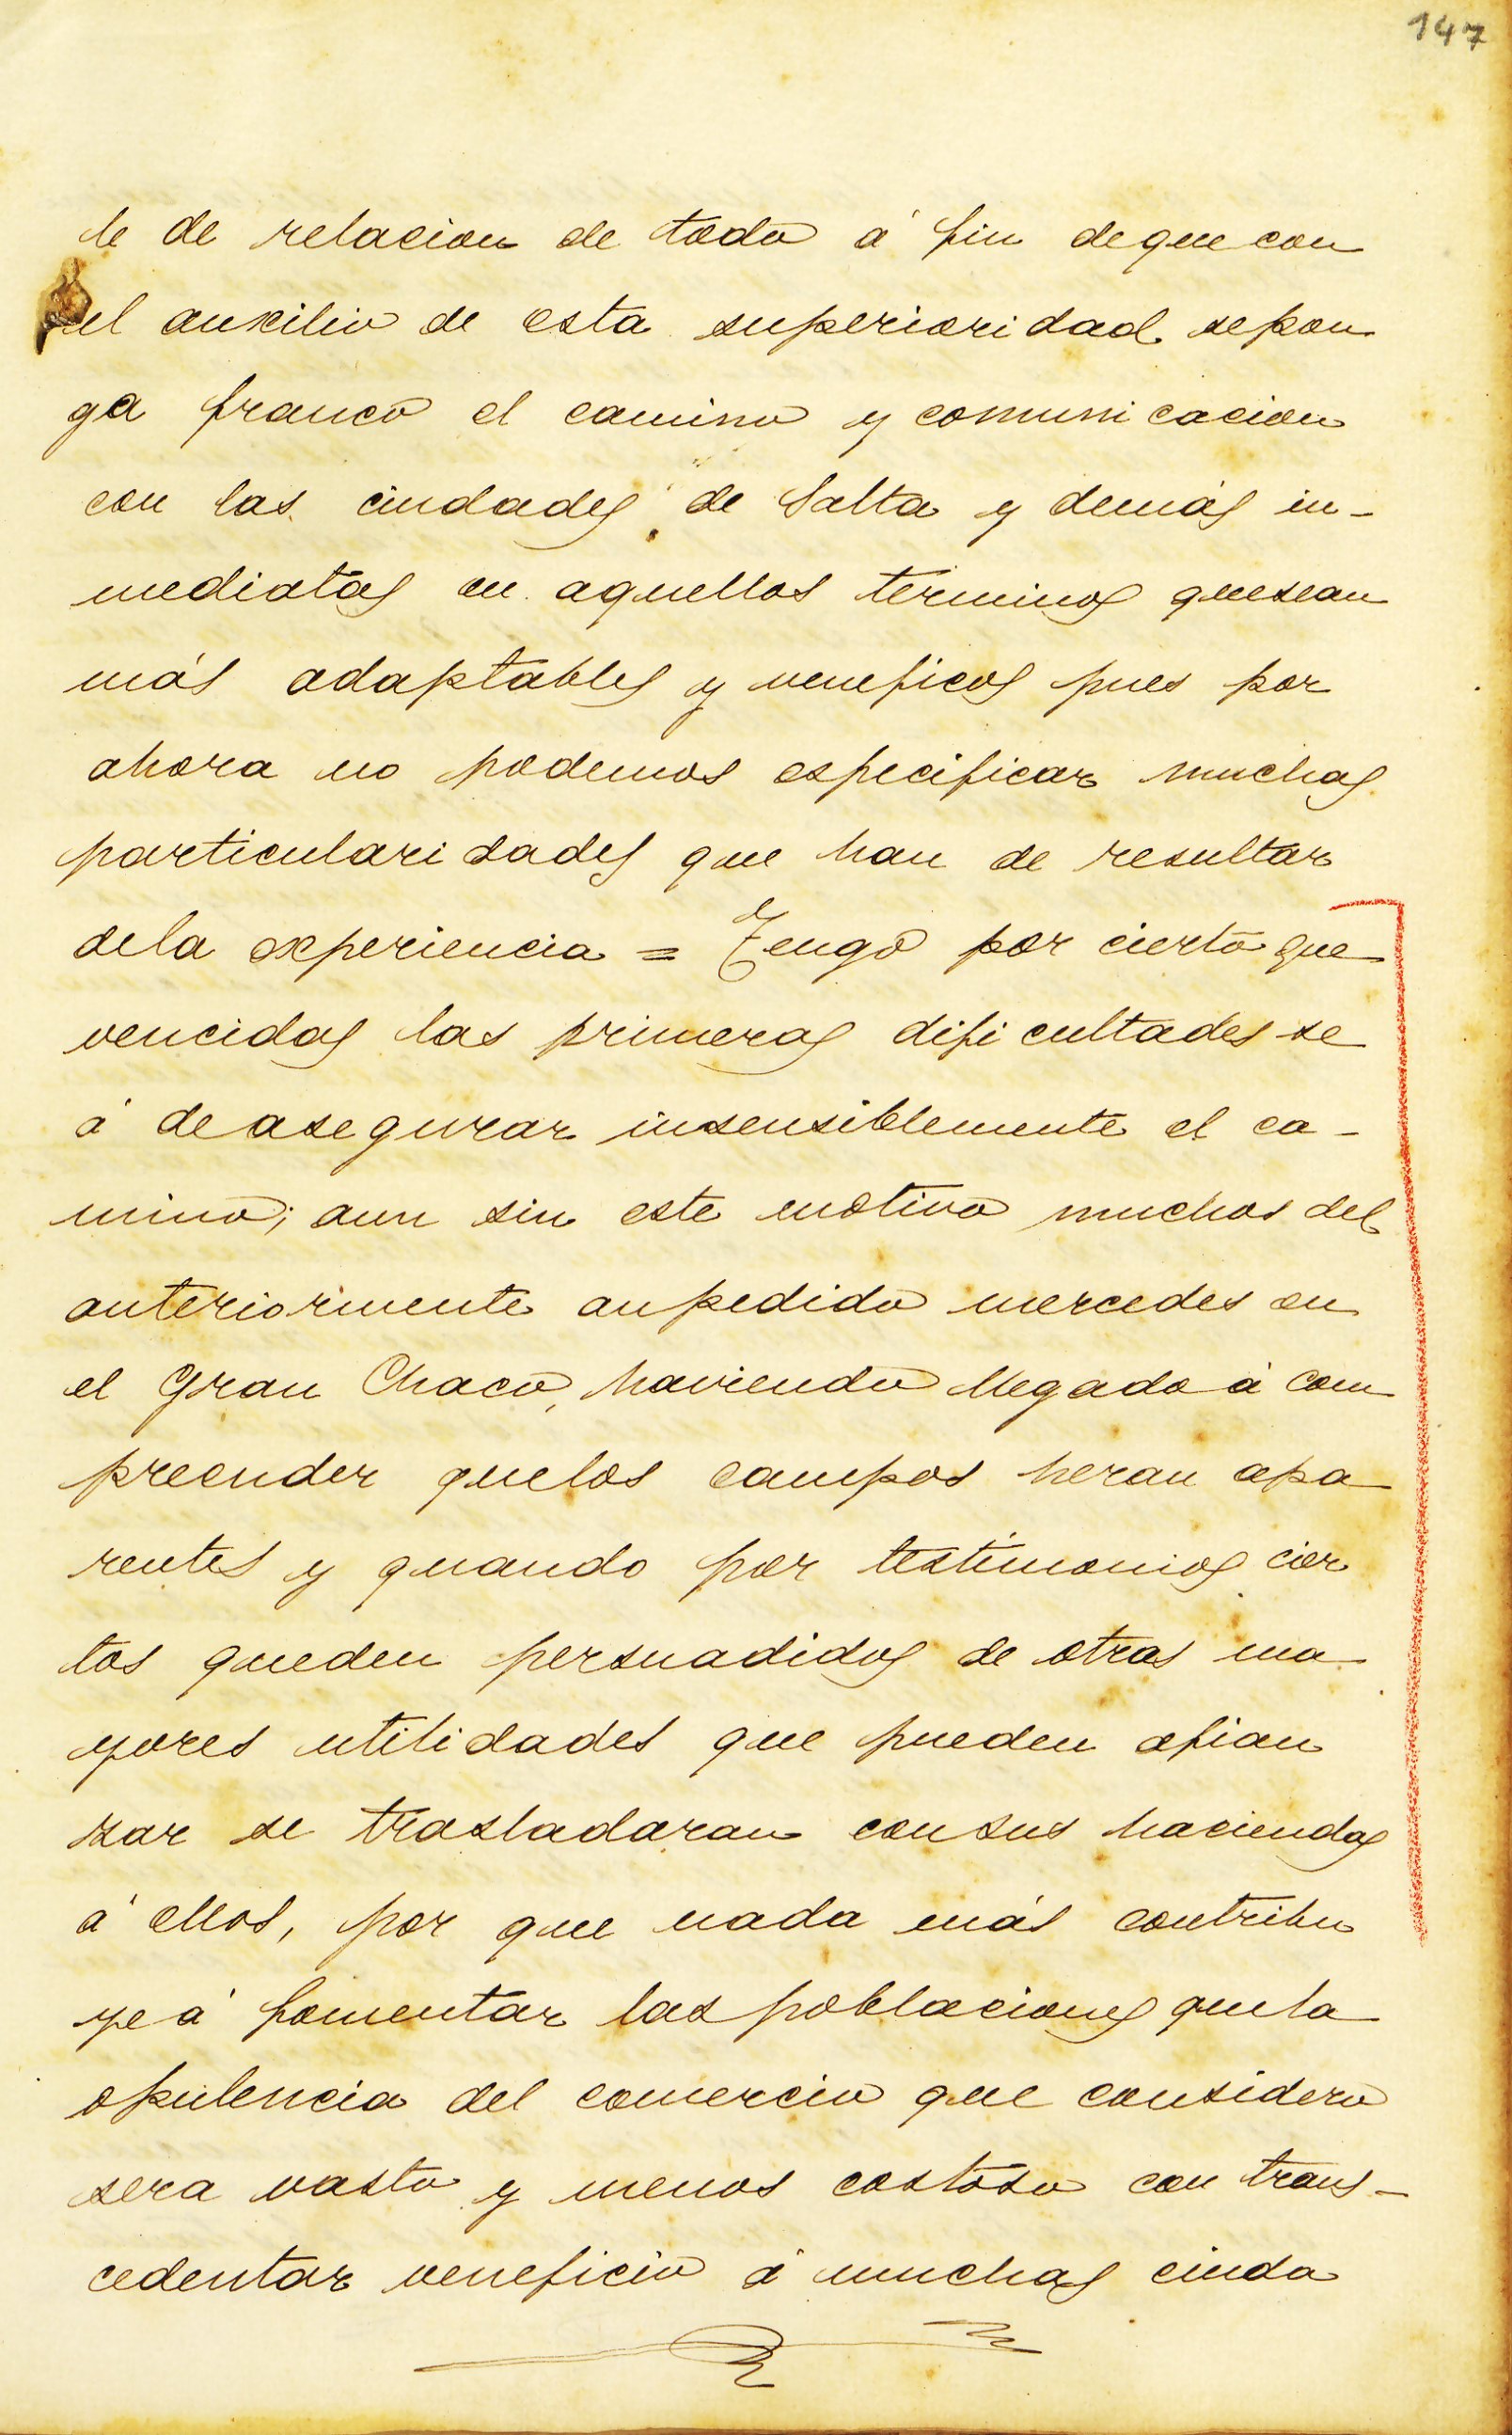 147
le de relacion de todo á fin deque con
el auxilio de esta superioridad sepon
ga franco el camino y comunicacion
con las ciudades de Salta y demás in-
mediatas en aquellos terminos quesean
más adaptables y veneficos pues por
ahora no podemos especificar muchas
particularidades que han de resultar
dela experiencia = Tengo por cierto que
vencidas las primeras dificultades se
á de asegurar insensiblemente el ca-
mino; aun sin este motivo muchos del
anteriormente anpedido mercedes en
el Gran Chaco, haviendo llegado á com
preender quelos campos heran apa
rentes y quando por testimonios cier
tos queden persuadidos de otras ma
yores utilidades que pueden afian
zar se trasladaran consus haciendas
á ellos, por que nada más contribu
ye á fomentar las poblaciones quela
opulencia del comercio que considero
sera vasto y menos costoso con trans-
cedentar veneficio á muchas ciuda